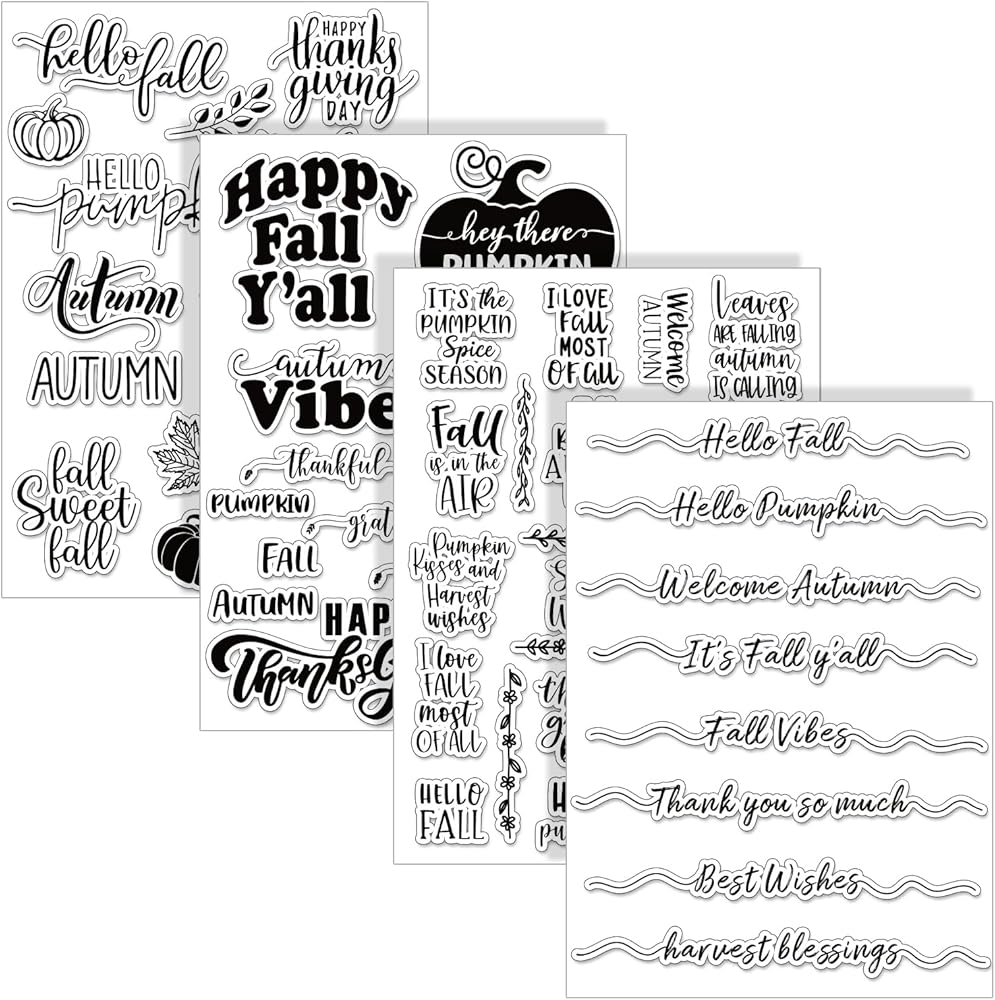 hello fall
HAPPY
thanks
giving
DAY
HELLO
Autumn
AUTUMN
fall
Sweet
fall
Happy
Fall
Y'all
hey there
PUMPKIN
autumn
thankful
PUMPKIN
FALL
AUTUMN
IT'S the
PUMPKIN
Spice
SEASON
I LOVE
FALL
MOST
OF all
Welcome
AUTUMN
Leaves
ARE FALLING
autumn
IS CALLING
Fall
is in the
AIR
Pumpkin
Kisses and
Harvest
wishes
I love
FALL
most
OF ALL
HELLO
FALL
Hello Fall
Hello Pumpkin
Welcome Autumn
It's Fall y'all
Fall Vibes
Thank you so much
Best Wishes
harvest blessings